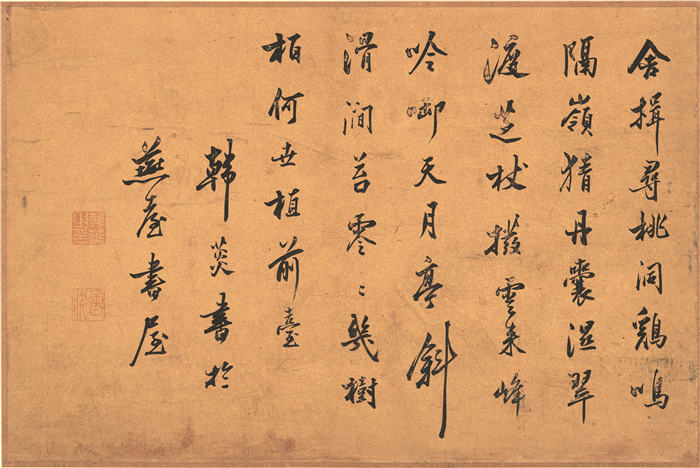 舍楫尋桃洞鷄鳴
隔嶺猜丹囊濕翠
渡芝杖撥雲來峰
啣天月亭斜
滑澗苔零〻幾樹
栢何世植前臺
韓菼書於
燕臺書屋